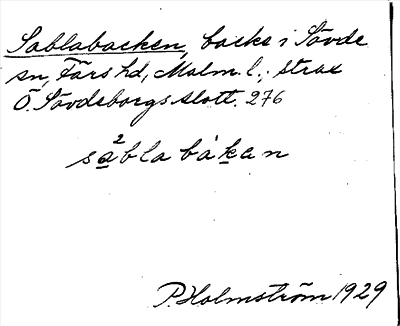 Sablabacken, backe i Sövde
sn, Färs hd, Malm. l.; strax
Ö. Sövdeborgs slott. 276
sa²blabàkan
P. Holmström 1929